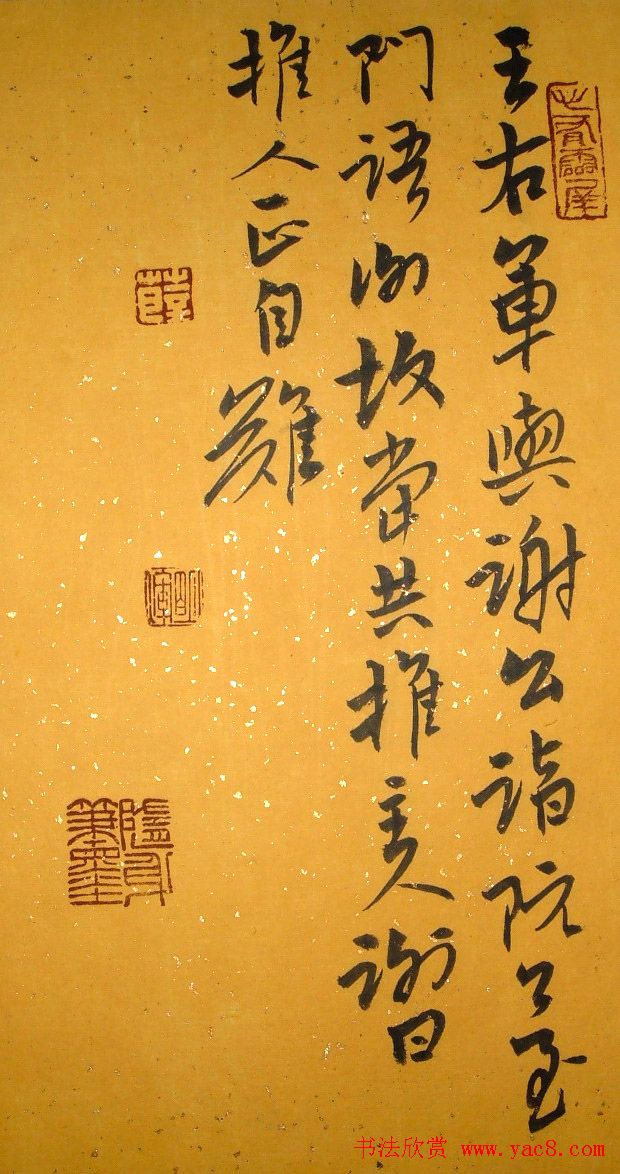 王右軍與謝公詣阮公至
門語謝故當共推主人謝曰
推人正自難
书法欣赏 www.yac8.com